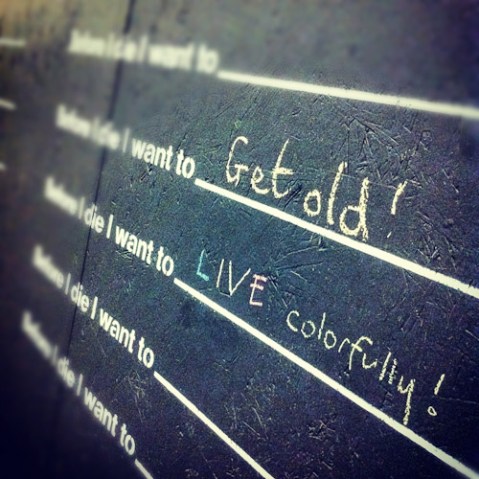 Before I die I want to
Before I die I want to Get old!
Before I die I want to LIVE colorfully!
Before I die I want to
Before I die I want to